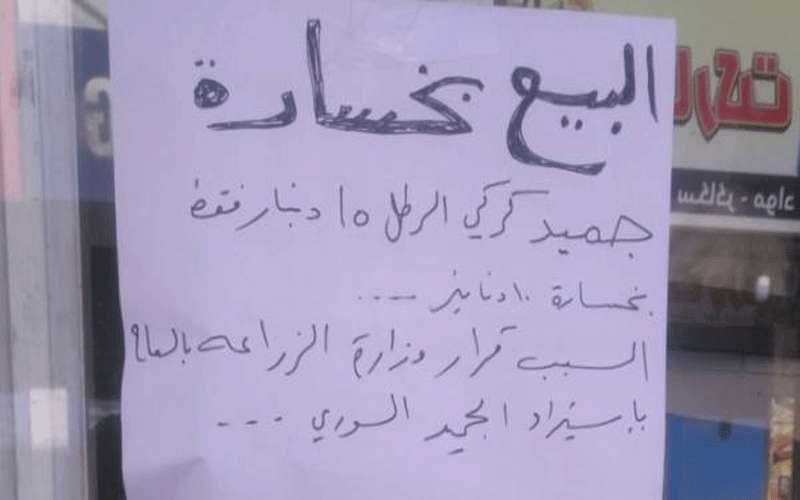 البيع بخسارة
جميد كركي الرطل ١٥ دينار فقط
بخسارة ١٠ دنانير ---
السبب قرار وزارة الزراعه بالسماح
بإستيراد الجميد السوري ---